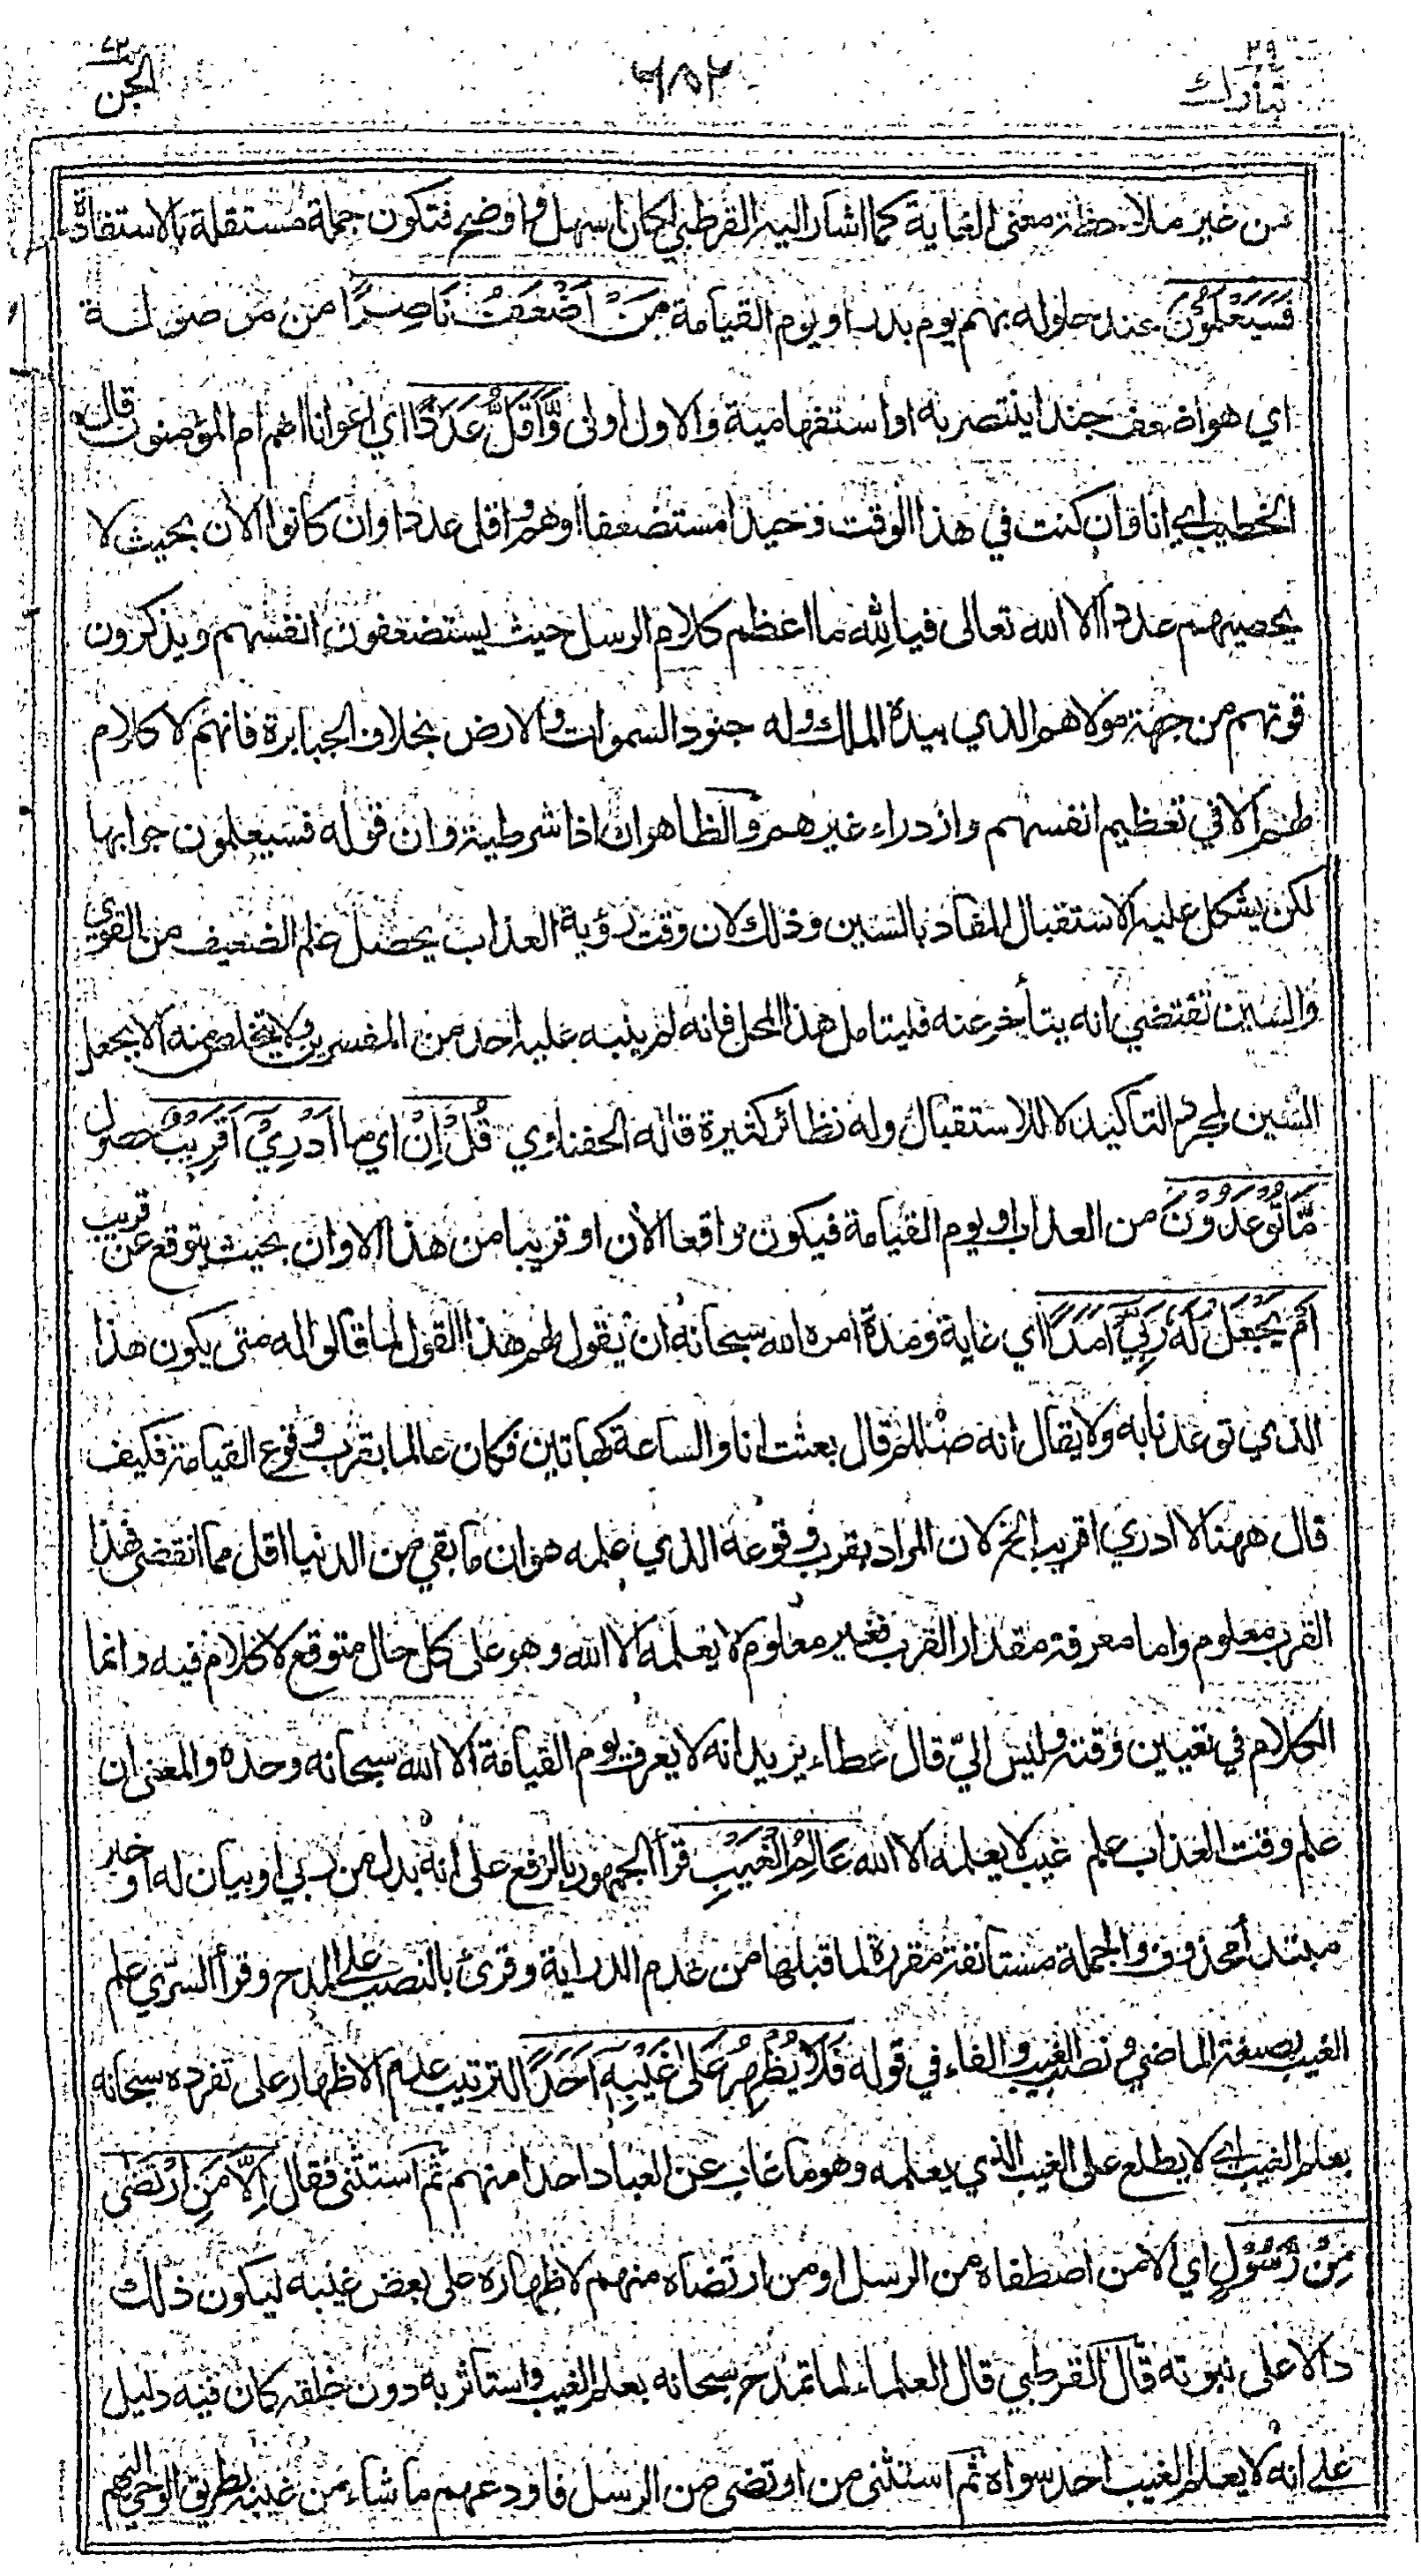 ٢٩ تبارك
٦٨٢
٧٢ الجن
من غير ملاحظة معنى الغاية كما اشار اليه القرطبي لكان اسهل واوضح فتكون جملة مستقلة بالاستفادة
فَسَيَعْلَمُوْنَ عند حلوله بهم يوم بدر او يوم القيامة مَنْ اَضْعَفُ نَاصِرًا من موصولة
اي هو اضعف جندا ينتصر به او استفهامية والاول اولى وَّاَقَلُّ عَدَدًا اي اعوانا اهم ام المؤمنون قال
الخطيب اي انا وان كنت في هذا الوقت وحيدا مستضعفا او هم واقل عددا وان كانوا الآن بحيث لا
يحصيهم عددا الا الله تعالى فيا لله ما اعظم كلام الرسل حيث يستضعفون انفسهم ويذكرون
قوتهم من جهة مولاهم الذي بيده الملك وله جنود السموات والارض بخلاف الجبابرة فانهم لا كلام
لهم الا في تعظيم انفسهم وازدراء غيرهم والظاهر ان اذا شرطية وان قوله فسيعلمون جوابها
لكن يشكل عليه الاستقبال المفاد بالسين وذلك لان وقت رؤية العذاب يحصل علم الضعيف من القوي
والسين تقتضي انه يتأخر عنه فليتامل هذا المحل فانه لم ينبه عليه احد من المفسرين ولا يتخلص منه الا بجعل
السين لمجرد التاكيد لا للاستقبال وله نظائر كثيرة قاله الحفناوي قُلْ اِنْ اي ما اَدْرِيْٓ اَقَرِيْبٌ حصول
مَّا تُوْعَدُوْنَ من العذاب او يوم القيامة فيكون واقعا الآن او قريبا من هذا الاوان بحيث يتوقع عن قريب
اَمْ يَجْعَلُ لَهٗ رَبِّيْٓ اَمَدًا اي غاية ومدة امره الله سبحانه ان يقول لهم هذا القول لما قالوا له متى يكون هذا
الذي توعدنا به ولا يقال انه صللم قال بعثت انا والساعة كهاتين فكان عالما بقرب وقوع القيامة فكيف
قال ههنا لا ادري اقريب الخ لان المراد بقرب وقوعه الذي علمه هو ان ما بقي من الدنيا اقل مما انقضى فهذا
القرب معلوم واما معرفة مقدار القرب فغير معلوم لا يعلمه الا الله وهو على كل حال متوقع لا كلام فيه وانما
الكلام في تعيين وقته وليس اليّ قال عطاء يريد انه لا يعرف يوم القيامة الا الله سبحانه وحده والمعنى ان
علم وقت العذاب علم غيب لا يعلمه الا الله عَالِمُ الْغَيْبِ قرأ الجمهور بالرفع على انه بدل من ربي او بيان له او خبر
مبتدأ محذوف والجملة مستانفة مقررة لما قبلها من عدم الدراية وقرئ بالنصب على المدح وقرأ السرّي علم
الغيب بصيغة الماضي ونصب الغيب والفاء في قوله فَلَا يُظْهِرُ عَلٰى غَيْبِهٖٓ اَحَدًا لترتيب عدم الاظهار على تفرده سبحانه
بعلم الغيب اي لا يطلع على الغيب الذي يعلمه وهو ما غاب عن العباد احدا منهم ثم استثنى فقال اِلَّا مَنِ ارْتَضٰى
مِنْ رَّسُوْلٍ اي الا من اصطفاه من الرسل او من ارتضاه منهم لاظهاره على بعض غيبه ليكون ذلك
دالا على نبوته قال القرطبي قال العلماء لما تمدح سبحانه بعلم الغيب واستأثر به دون خلقه كان فيه دليل
على انه لا يعلم الغيب احد سواه ثم استثنى من ارتضى من الرسل فاودعهم ما شاء من غيبه بطريق الوحي اليهم